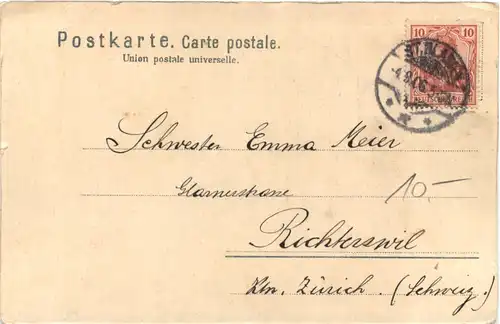 Postkarte. Carte postale.
Union postale universelle.
10 10
Schwester Emma Meier
Glarnerstrasse
10.-
Richterswil
Ktn. Zürich. (Schweiz.)